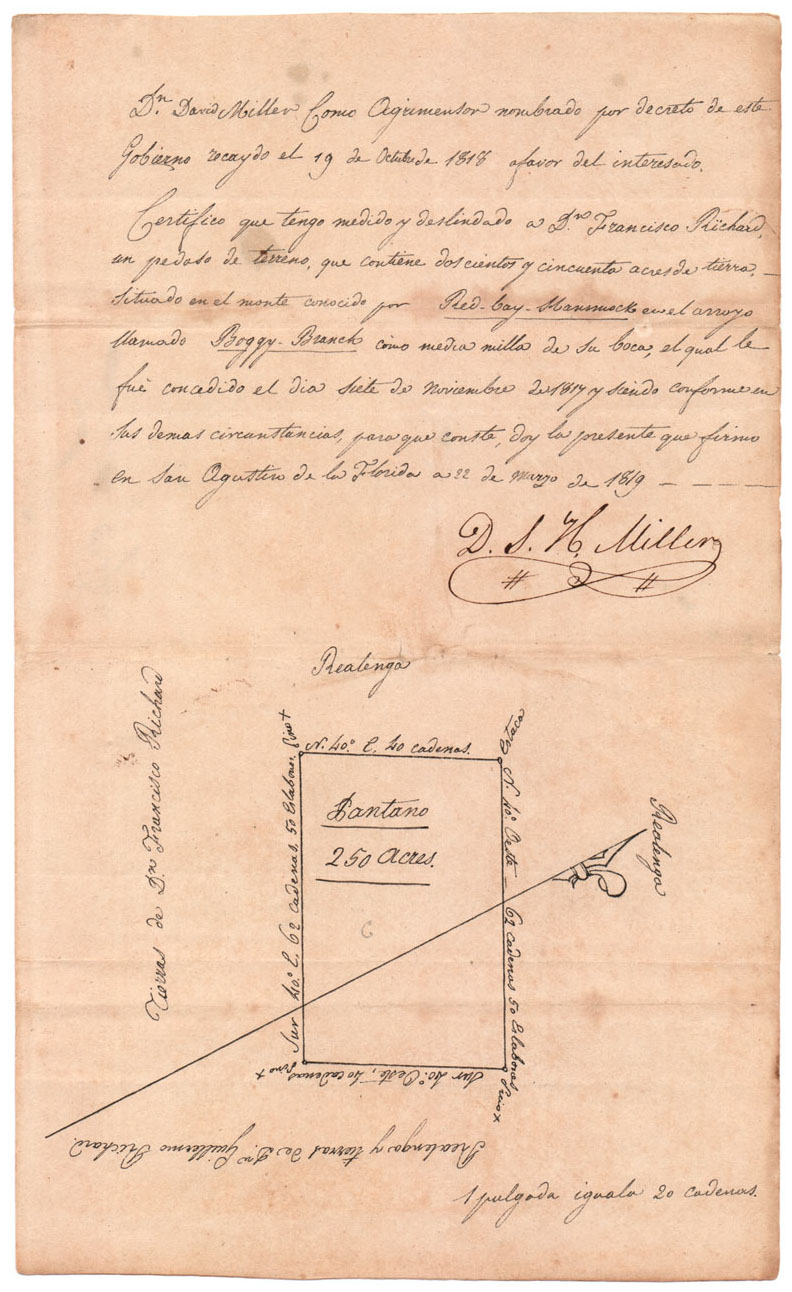 Dn. David Miller Como Agrimensor nombrado por decreto de este
Gobierno recaydo el 19 de Octubre de 1818 a favor del interesado.
Certifico que tengo medido y deslindado a Dn. Francisco Richard,
un pedaso de terreno, que contiene dos cientos y cincuenta acres de tierra,
situado en el monte conocido por Red-bay-Hammock en el arroyo
llamado Boggy-Branch como media milla de su boca, el qual le
fué concedido el dia siete de noviembre de 1817 y siendo conforme en
sus demas circunstancias, para que conste, doy la presente que firmo
en san Agustin de la Florida a 22 de marzo de 1819 - - - -
D. S. H. Miller
Realenga
Tierras de Dn. Francisco Richard
Pino +
N. 40.° E. 40 cadenas.
Estaca
Sur 40.° E. 62 cadenas. 50 Eslabones.
Pantano
250 Acres.
N. 40.° Oeste - 62 cadenas 50 Eslabones
Realenga
Pino +
Sur 40.° Oeste, 40 cadenas
Pino x
Realenga y tierras de Dn. Guillermo Richard.
1 pulgada iguala 20 cadenas.